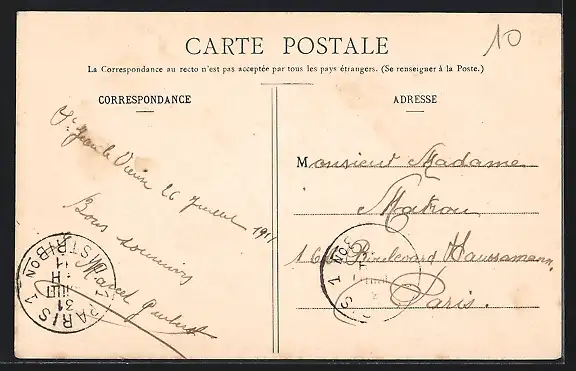 10
CARTE POSTALE
La Correspondance au recto n'est pas acceptée par tous les pays étrangers. (Se renseigner à la Poste.)
CORRESPONDANCE
ADRESSE
26 Juillet 1911
Bons souvenirs
Marcel
Monsieur Madame
Boulevard Haussmann,
Paris.
PARIS 1
DISTRIBON
31
11